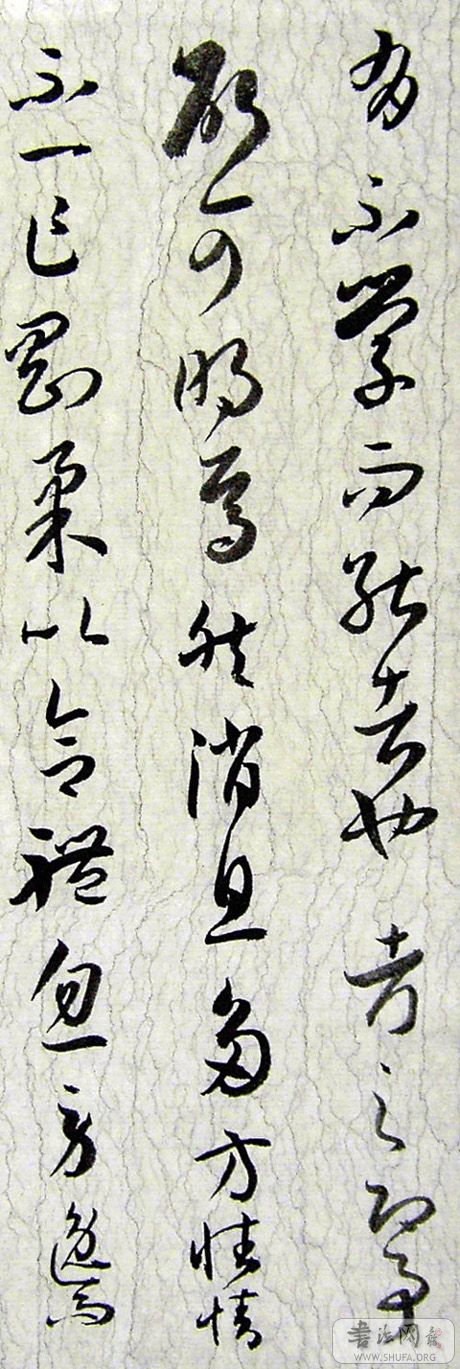 有不學而能者也考之即事
斷可明焉然消息多方性情
不一乍剛柔以合體忽勞逸而
書法网
WWW.SHUFA.ORG